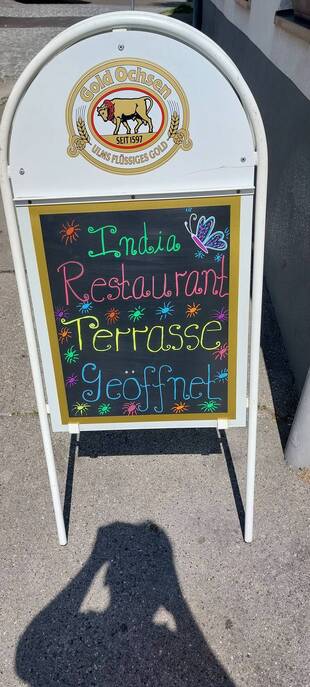 Gold Ochsen
SEIT 1597
ULMS FLÜSSIGES GOLD
India
Restaurant
Terrasse
geöffnet